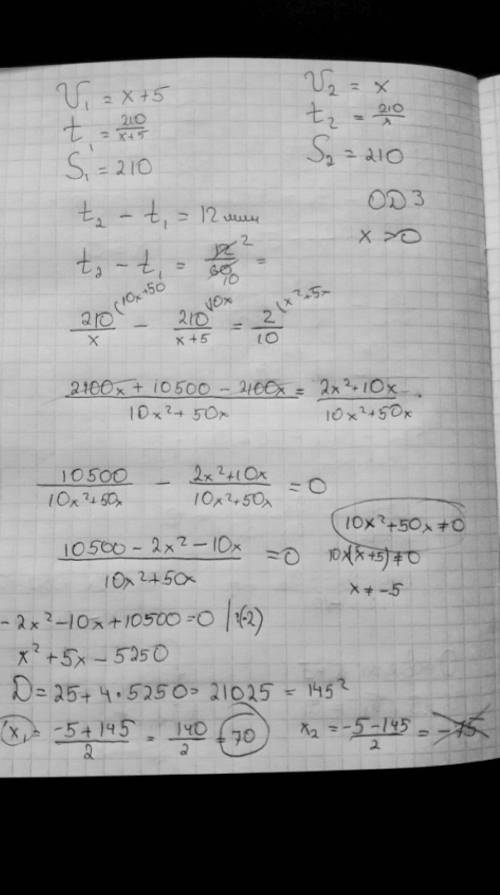 V₁ = x+5
t₁ = 210/(x+5)
S₁ = 210
V₂ = x
t₂ = 210/x
S₂ = 210
ОДЗ
x > 0
t₂ − t₁ = 12 мин
t₂ − t₁ = 12/60 2/10 =
210/x (10x+50 − 210/(x+5) (10x = 2/10 (x²+5x
(2100x + 10500 − 2100x)/(10x² + 50x) = (2x² + 10x)/(10x² + 50x) .
10500/(10x²+50x) − (2x²+10x)/(10x²+50x) = 0
(10500 − 2x² − 10x)/(10x² + 50x) = 0
10x²+50x ≠ 0
10x(x+5) ≠ 0
x ≠ −5
−2x²−10x+10500=0 |:(-2)
x² + 5x − 5250
D = 25 + 4·5250 = 21025 = 145²
x₁ = (−5+145)/2 = 140/2 = 70
x₂ = (−5−145)/2 = −75